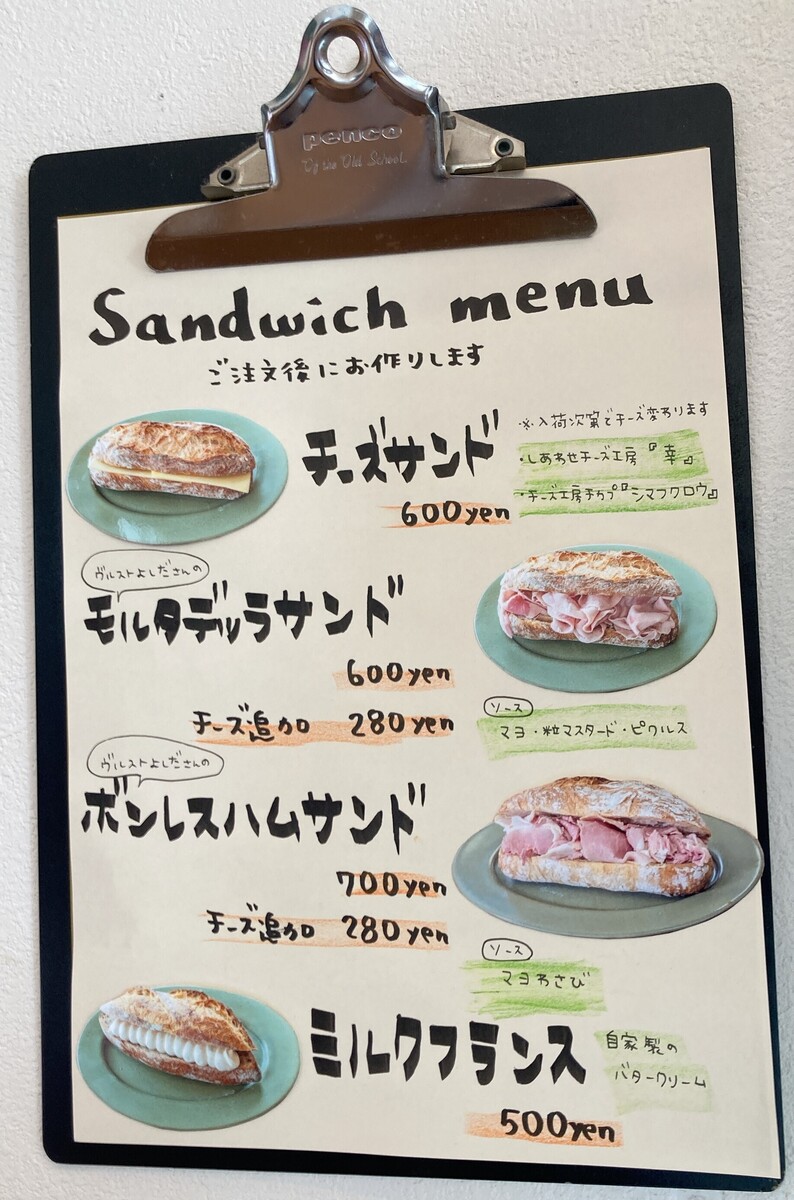 penco
"Of the Old School."
Sandwich menu
ご注文後にお作りします
チーズサンド
600yen
※入荷次第でチーズ変わります
・しあわせチーズ工房『幸』
・チーズ工房チカプ『シマフクロウ』
ヴルストよしださんの
モルタデッラサンド
600yen
チーズ追加 280yen
ソース
マヨ・粒マスタード・ピクルス
ヴルストよしださんの
ボンレスハムサンド
700yen
チーズ追加 280yen
ソース
マヨわさび
ミルクフランス
500yen
自家製の
バタークリーム